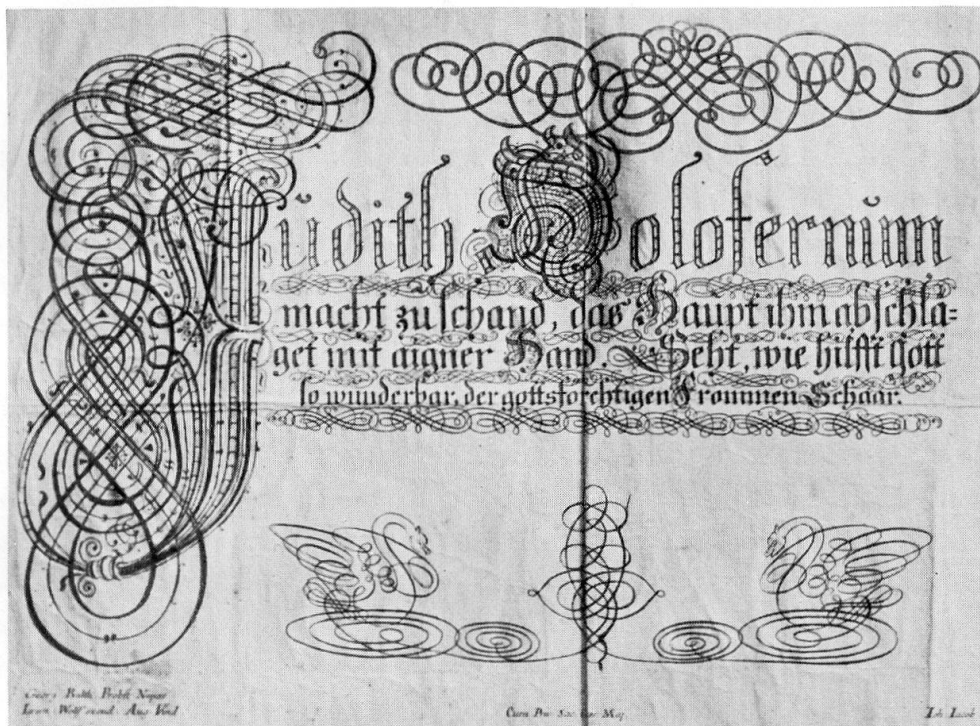 Judith Holofernum
macht zu schand, das Haupt ihm abschlä=
get mit aigner Hand. Seht, wie hilfft Gott
so wunderbar, der gottsförchtigen Frommen Schaar.
Probst Nepos
Wolf Aug Vind
Cum Pr. Sac. Maj.
Ioh